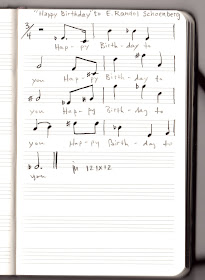 "Happy Birthday" to E. Randol Schoenberg
3/4
Hap-py Birth-day to
you Hap-py Birth-day to
you Hap-py Birth-day
you Hap-py Birth-day to
you